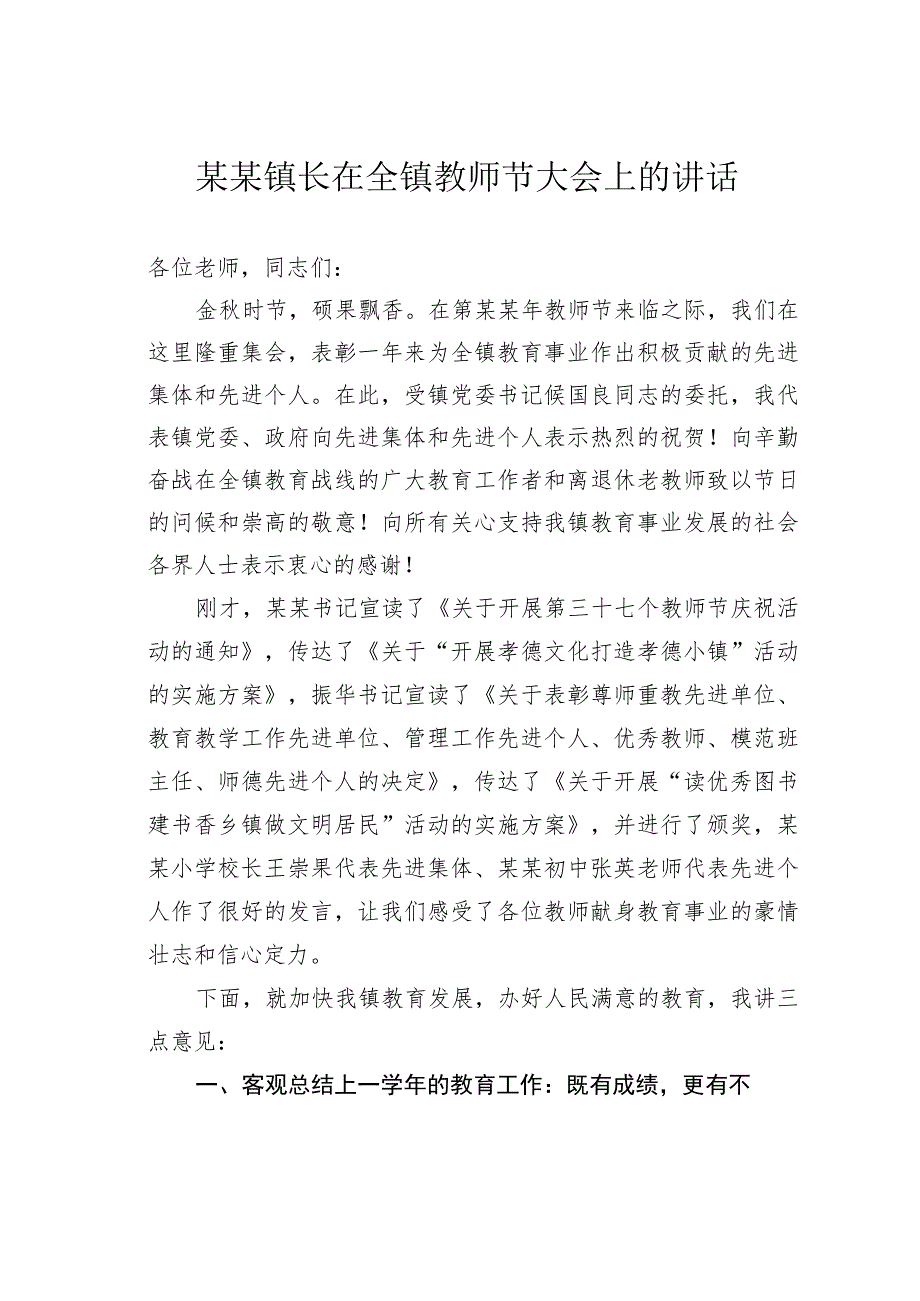 某某镇长在全镇教师节大会上的讲话
各位老师，同志们：
金秋时节，硕果飘香。在第某某年教师节来临之际，我们在
这里隆重集会，表彰一年来为全镇教育事业作出积极贡献的先进
集体和先进个人。在此，受镇党委书记候国良同志的委托，我代
表镇党委、政府向先进集体和先进个人表示热烈的祝贺！向辛勤
奋战在全镇教育战线的广大教育工作者和离退休老教师致以节日
的问候和崇高的敬意！向所有关心支持我镇教育事业发展的社会
各界人士表示衷心的感谢！
刚才，某某书记宣读了《关于开展第三十七个教师节庆祝活
动的通知》，传达了《关于“开展孝德文化打造孝德小镇”活动
的实施方案》，振华书记宣读了《关于表彰尊师重教先进单位、
教育教学工作先进单位、管理工作先进个人、优秀教师、模范班
主任、师德先进个人的决定》，传达了《关于开展“读优秀图书
建书香乡镇做文明居民”活动的实施方案》，并进行了颁奖，某
某小学校长王崇果代表先进集体、某某初中张英老师代表先进个
人作了很好的发言，让我们感受了各位教师献身教育事业的豪情
壮志和信心定力。
下面，就加快我镇教育发展，办好人民满意的教育，我讲三
点意见：
一、客观总结上一学年的教育工作：既有成绩，更有不